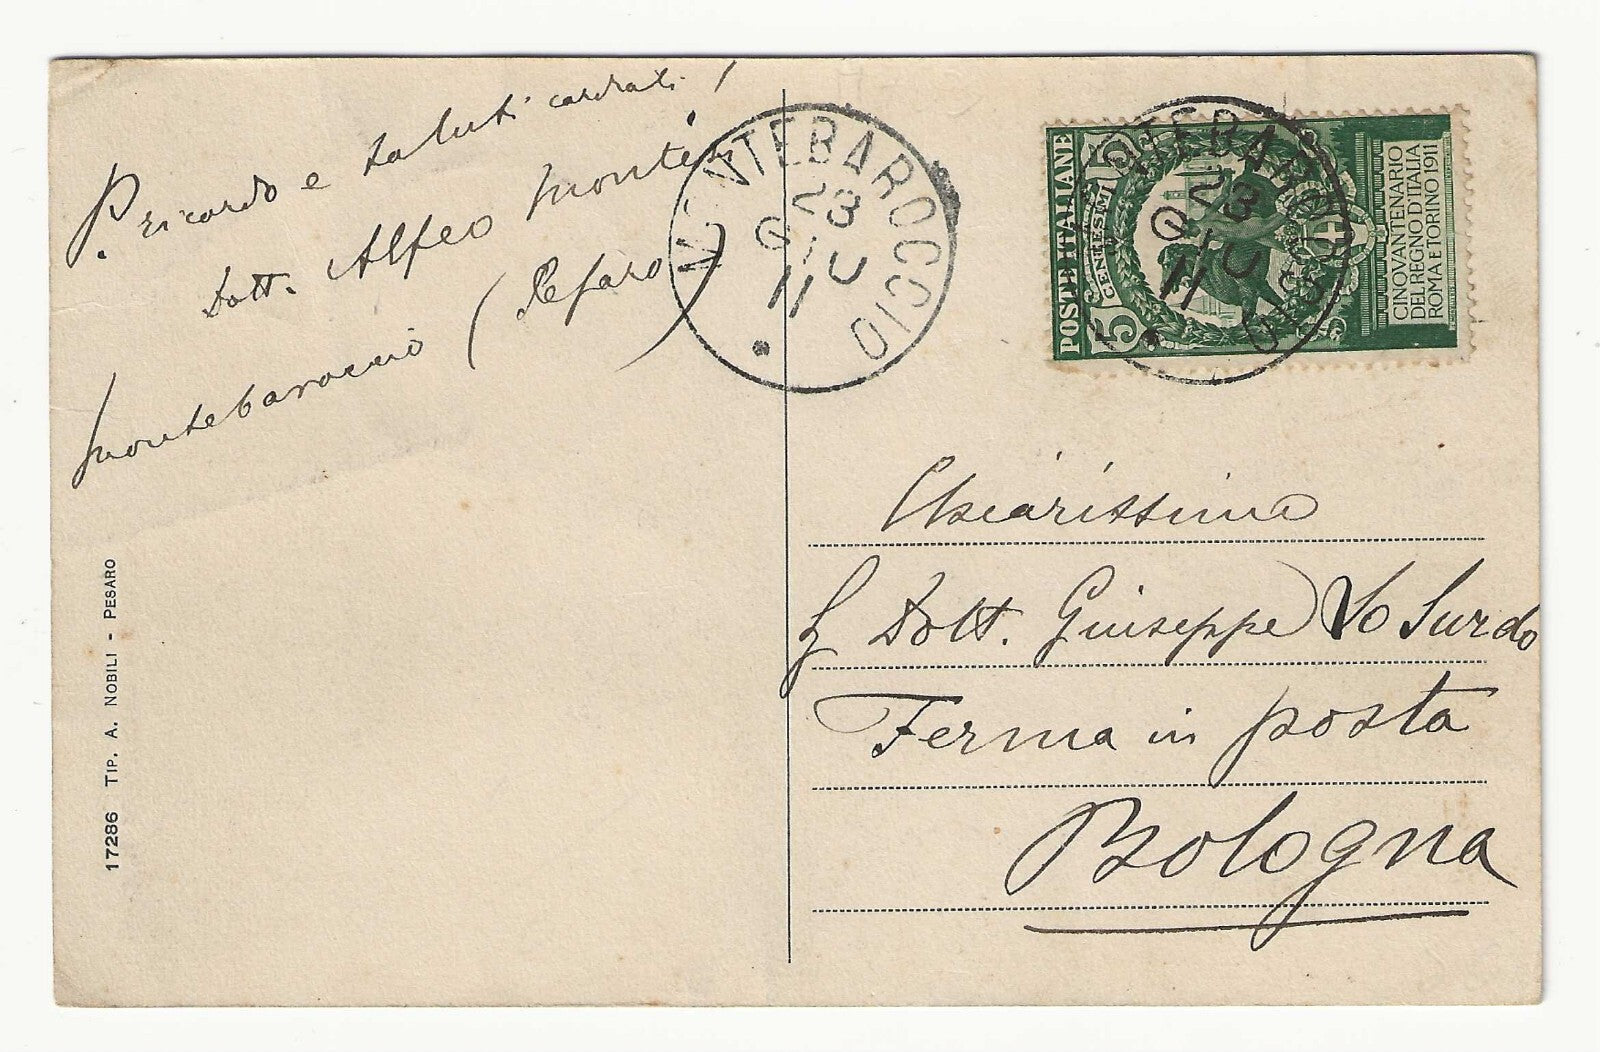 P. ricordo e saluti cordiali!
Dott. Alfeo
Montebaroccio (Pesaro)
17286 TIP. A. NOBILI - PESARO
MONTEBAROCCIO
23
GIU
11
POSTE ITALIANE
5 CENTESIMI 5
CINQVANTENARIO
DEL REGNO D'ITALIA
ROMA E TORINO 1911
MONTEBAROCCIO
23
GIU
11
Chiarissimo
Dott. Giuseppe Lo Surdo
Ferma in posta
Bologna